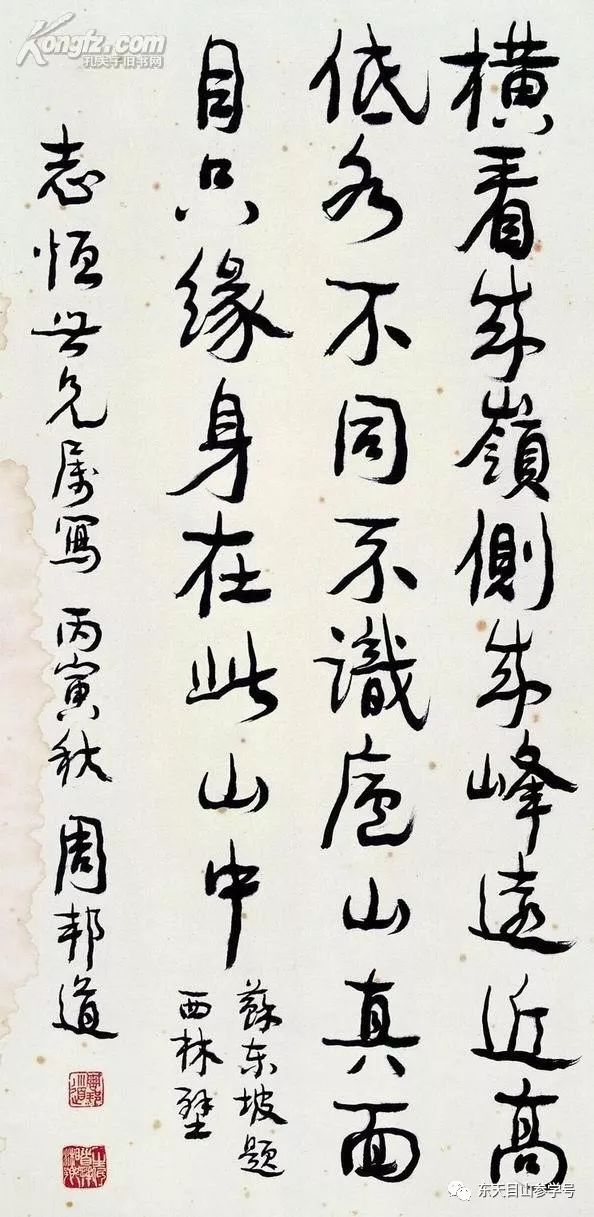 Kongfz.com
孔夫子旧书网
橫看成嶺側成峰遠近高
低各不同不識廬山真面
目只緣身在此山中
蘇東坡題
西林壁
志恒世兄属寫 丙寅秋 周邦道
周邦道
东天目山参学号